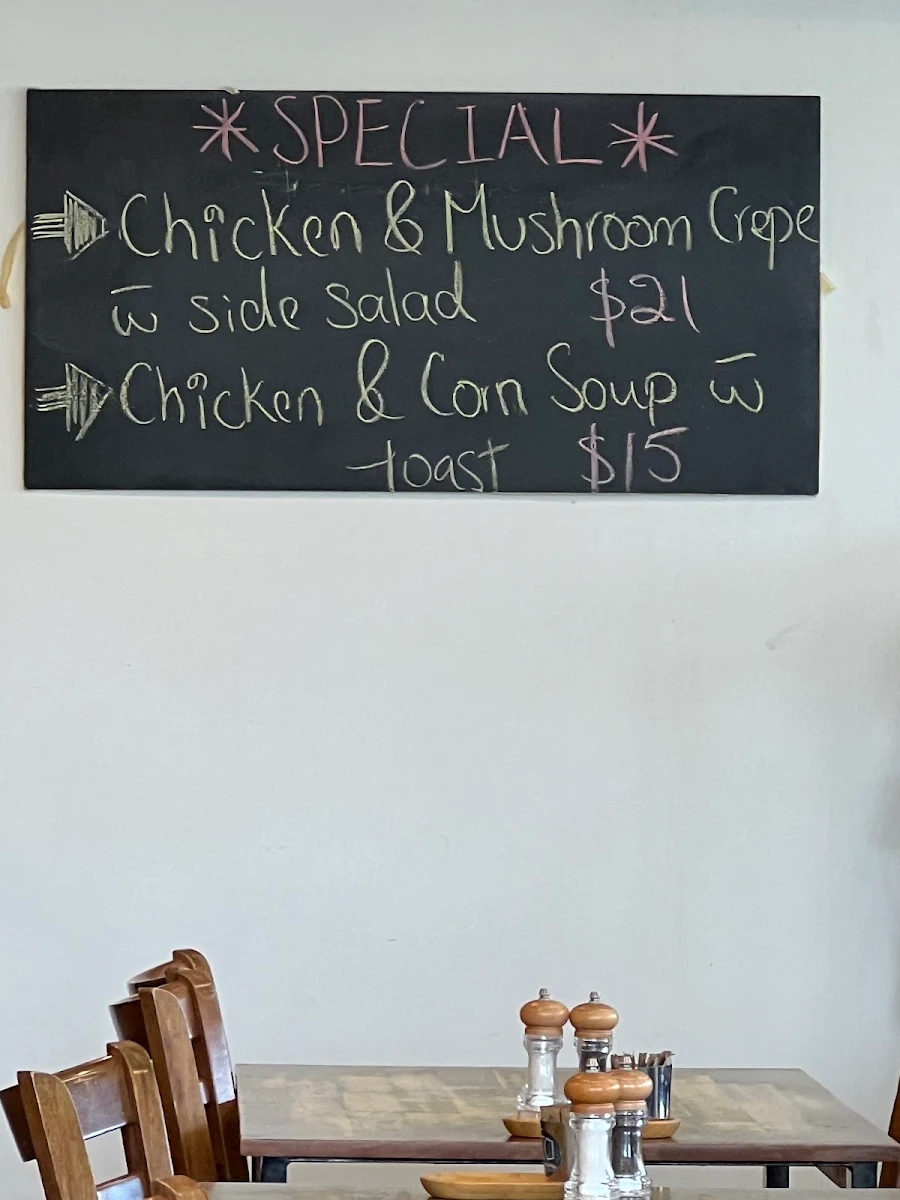 * SPECIAL *
Chicken & Mushroom Crepe
w̄ side salad $21
Chicken & Corn Soup w̄
toast $15